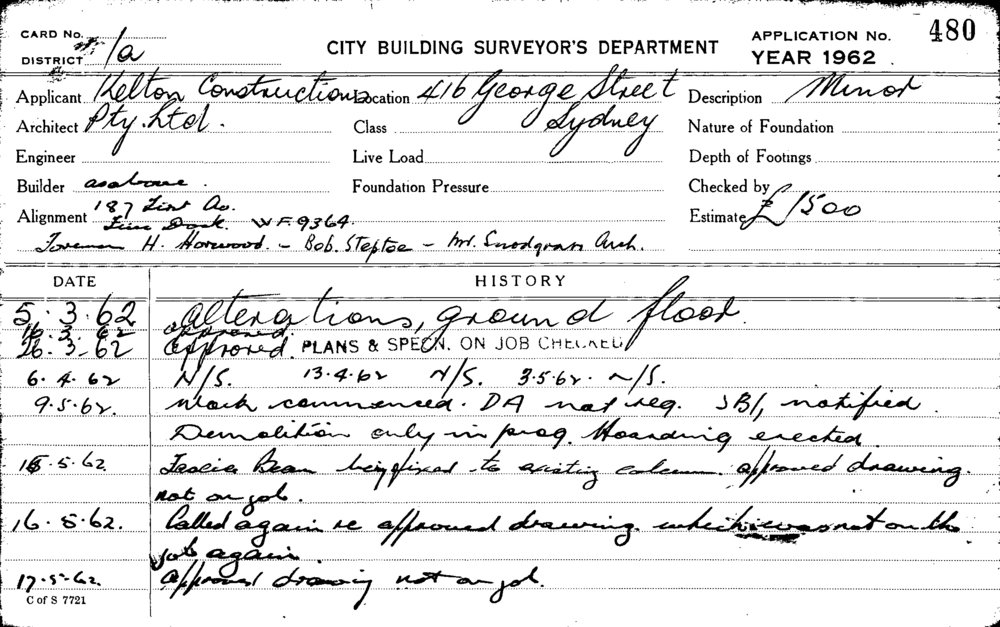 CARD No.
DISTRICT 1a
CITY BUILDING SURVEYOR'S DEPARTMENT
APPLICATION No. 480
YEAR 1962
Applicant Kelton Constructions Location 416 George Street Description Minor
Architect Pty. Ltd. Class Sydney Nature of Foundation
Engineer Live Load Depth of Footings
Builder as above. Foundation Pressure Checked by
187 Av.
Alignment Dock. WF.9364. Estimate £1500
Foreman H. Horwood. - Bob. Steptoe - Mr. Snodgrass Arch.
DATE HISTORY
5.3.62 Alterations, ground floor.
16.3.62 approved.
26.3.62 Approved. PLANS & SPECN. ON JOB CHECKED
6.4.62 N/S. 13.4.62 N/S. 3.5.62. N/S.
9.5.62. Work commenced. DA not req. SB1, notified.
Demolition only in prog. Hoarding erected.
15.5.62. Fascia Beam being fixed to existing column. approved drawing.
not on job.
16.5.62. Called again re approved drawing which was not on the
job again.
17.5.62. approved drawing not on job.
C of S 7721